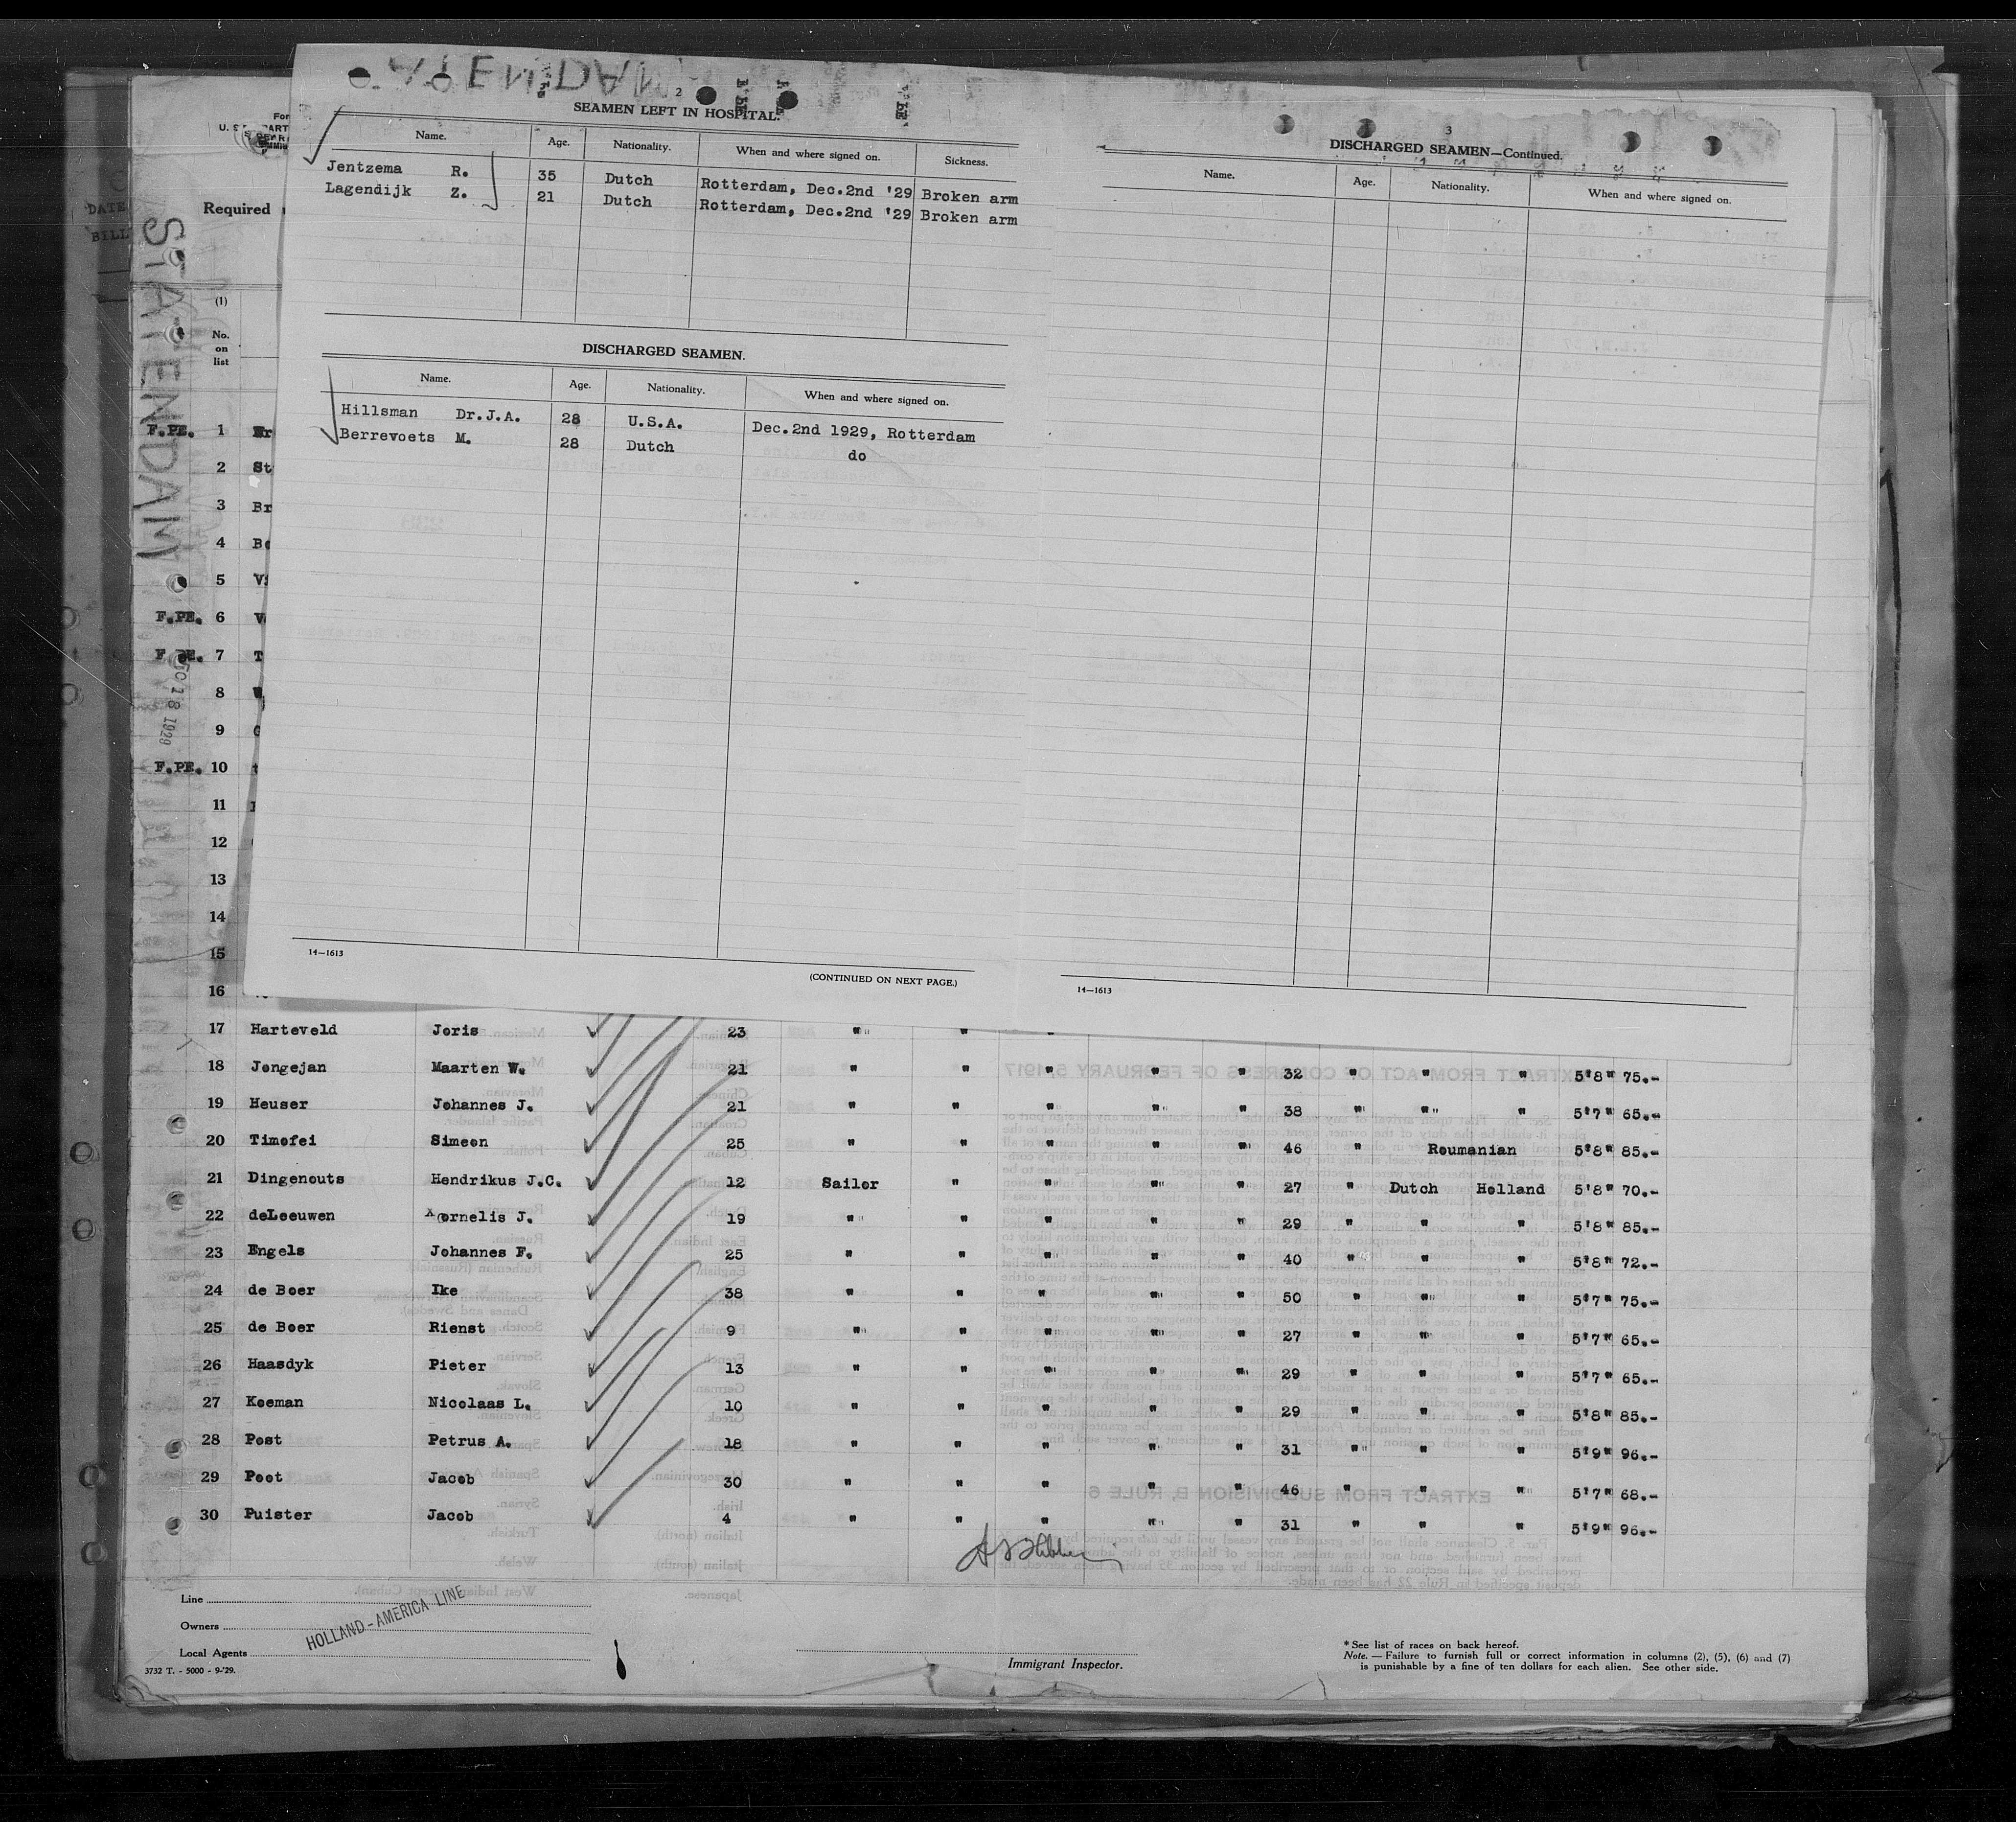 STATENDAM
2
SEAMEN LEFT IN HOSPITAL.
Name. Age. Nationality. When and where signed on. Sickness.
Jentzema R. 35 Dutch Rotterdam, Dec.2nd '29 Broken arm
Lagendijk Z. 21 Dutch Rotterdam, Dec.2nd '29 Broken arm
DISCHARGED SEAMEN.
Name. Age. Nationality. When and where signed on.
Hillsman Dr.J.A. 28 U.S.A. Dec.2nd 1929, Rotterdam
Berrevoets M. 28 Dutch do
14—1613
(CONTINUED ON NEXT PAGE.)
3
DISCHARGED SEAMEN—Continued.
Name. Age. Nationality. When and where signed on.
14—1613
DATE
BILL
Required
STATENDAM
1929
(1)
No.
on
list
F.PE. 1
2 St
3 Br
4
5
F.PE. 6
7 T
8
9
F.PE. 10
11
12
13
14
15
16
17 Harteveld Joris 23 " "
18 Jongejan Maarten W. 21 " " " " " 32 " " " 5'8" 75.-
19 Heuser Johannes J. 21 " " " " " 38 " " " 5'7" 65.-
20 Timofei Simeon 25 " " " " " 46 " Roumanian 5'8" 85.-
21 Dingenouts Hendrikus J.C. 12 Sailor " " " " 27 " Dutch Holland 5'8" 70.-
22 deLeeuwen Kornelis J. 19 " " " " " 29 " " " 5'8" 85.-
23 Engels Johannes F. 25 " " " " " 40 " " " 5'8" 72.-
24 de Boer Ike 38 " " " " " 50 " " " 5'7" 75.-
25 de Boer Rienst 9 " " " " " 27 " " " 5'7" 65.-
26 Haasdyk Pieter 13 " " " " " 29 " " " 5'7" 65.-
27 Kooman Nicolaas L. 10 " " " " " 29 " " " 5'8" 85.-
28 Post Petrus A. 18 " " " " " 31 " " " 5'9" 96.-
29 Poot Jacob 30 " " " " " 46 " " " 5'7" 68.-
30 Puister Jacob 4 " " " " " 31 " " " 5'9" 96.-
Line
Owners
Local Agents
HOLLAND-AMERICA LINE
3732 T. - 5000 - 9-'29.
Immigrant Inspector.
* See list of races on back hereof.
Note. — Failure to furnish full or correct information in columns (2), (5), (6) and (7)
is punishable by a fine of ten dollars for each alien. See other side.